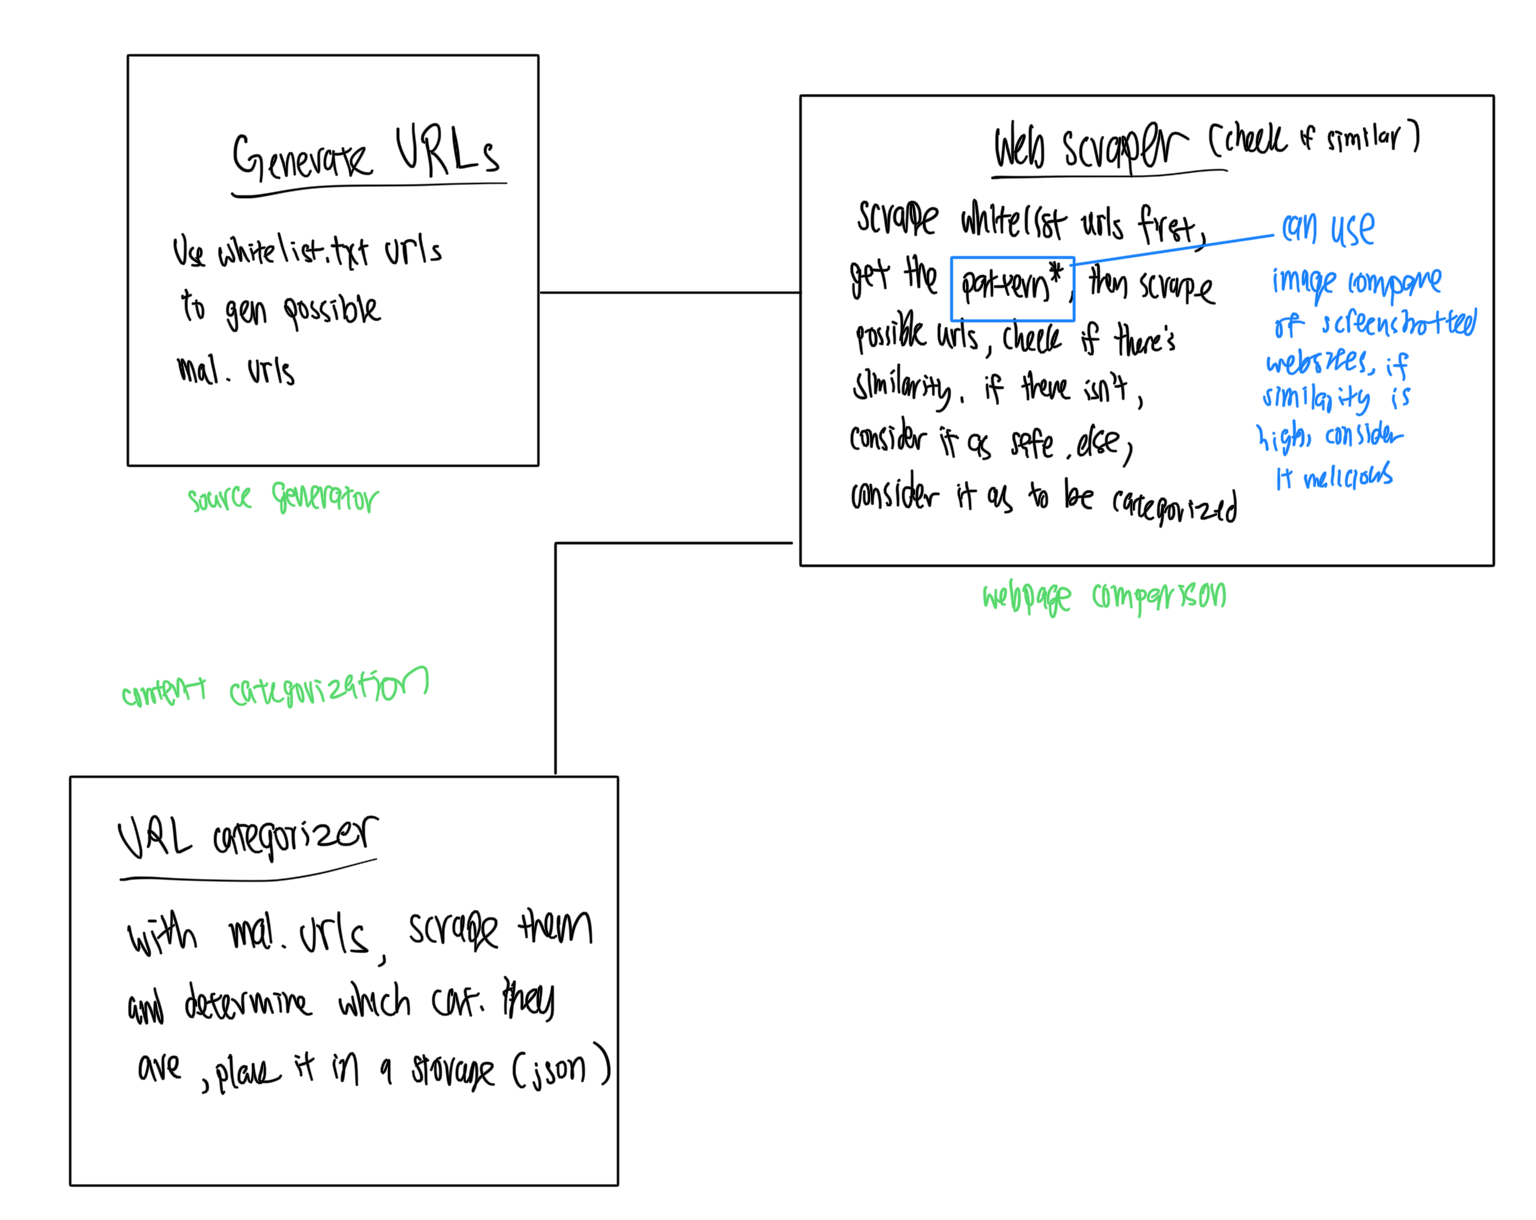 Generate URLs
Use whitelist.txt urls
to gen possible
mal. urls
source generator
Web scraper (check if similar)
scrape whitelist urls first,
get the pattern*, then scrape
possible urls, check if there's
similarity. if there isn't,
consider it as safe. else,
consider it as to be categorized
can use
image compare
of screenshotted
websites, if
similarity is
high, consider
it malicious
webpage comparison
content categorization
URL categorizer
with mal. urls, scrape them
and determine which cat. they
are, place it in a storage (json)